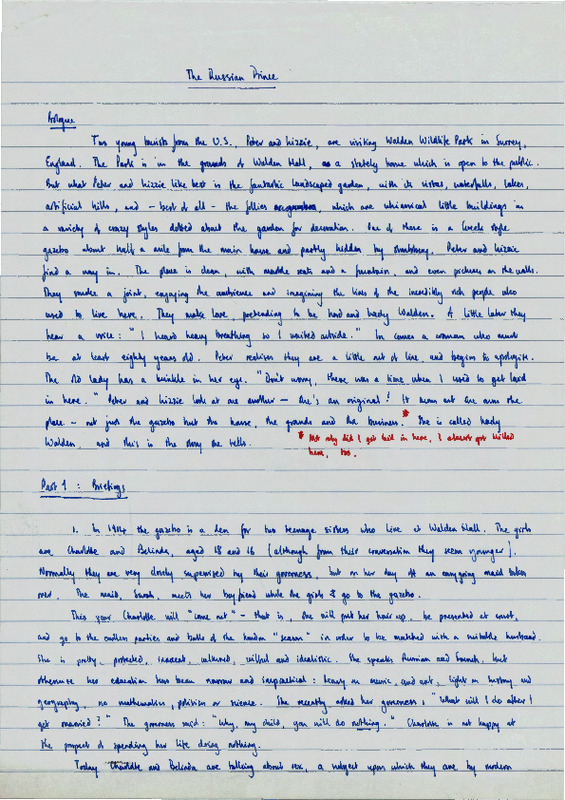 The Russian Prince
Prologue
Two young tourists from the U.S., Peter and Lizzie, are visiting Walden Wildlife Park in Surrey,
England. The Park is in the grounds of Walden Hall, a stately home which is open to the public.
But what Peter and Lizzie like best is the fantastic landscaped garden, with its vistas, waterfalls, lakes,
artificial hills, and - best of all - the follies, which are whimsical little buildings in
a variety of crazy styles dotted about the garden for decoration. One of these is a Greek style
gazebo about half a mile from the main house and partly hidden by shrubbery. Peter and Lizzie
find a way in. The place is clean, with marble seats and a fountain, and even pictures on the walls.
They smoke a joint, enjoying the ambience and imagining the lives of the incredibly rich people who
used to live here. They make love, pretending to be Lord and Lady Walden. A little later they
hear a voice: "I heard heavy breathing so I waited outside." In comes a woman who must
be at least eighty years old. Peter realises they are a little out of line, and begins to apologise.
The old lady has a twinkle in her eye. "Don't worry, there was a time when I used to get laid
in here." Peter and Lizzie look at one another - she's an original! It turns out she owns the
place - not just the gazebo but the house, the grounds and the business.* She is called Lady
Walden, and this is the story she tells.
* Not only did I get laid in here, I almost got killed
here, too.
Part 1 : Briefings
1. In 1914 the gazebo is a den for two teenage sisters who live at Walden Hall. The girls
are Charlotte and Belinda, aged 18 and 16 (although from their conversation they seem younger).
Normally they are very closely supervised by their governess, but on her day off an easygoing maid takes
over. The maid, Sarah, meets her boyfriend while the girls go to the gazebo.
This year Charlotte will "come out" - that is, she will put her hair up, be presented at court,
and go to the endless parties and balls of the London "season" in order to be matched with a suitable husband.
She is pretty, protected, innocent, cultured, wilful and idealistic. She speaks Russian and French, but
otherwise her education has been narrow and impractical: heavy on music and art, light on history and
geography, no mathematics, politics or science. She recently asked her governess: "What will I do after I
get married?" The governess said: "Why, my child, you will do nothing." Charlotte is not happy at
the prospect of spending her life doing nothing.
Today Charlotte and Belinda are talking about sex, a subject upon which they are by modern